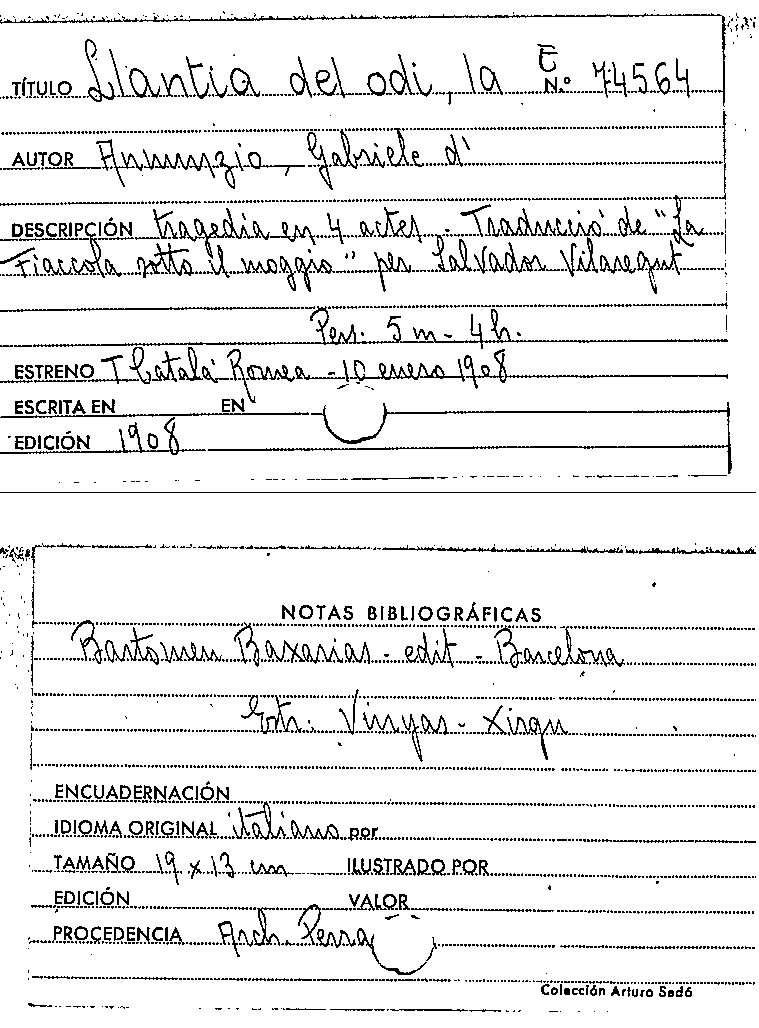 TÍTULO Llantia del odi, la E N.º 74564
AUTOR Annunzio, Gabriele d'
DESCRIPCIÓN tragedia en 4 actes - Traducció de "La
Fiaccola sotto il moggio" per Salvador Vilaregut
Pers. 5 m - 4 h.
ESTRENO T Catalá Romea - 10 enero 1908
ESCRITA EN EN
EDICIÓN 1908
NOTAS BIBLIOGRÁFICAS
Bartomeu Baxarias - edit - Barcelona
Intr. Vinyas - Xirgu
ENCUADERNACIÓN
IDIOMA ORIGINAL italiano por
TAMAÑO 19 x 13 cm ILUSTRADO POR
EDICIÓN VALOR
PROCEDENCIA Arch.
Colección Arturo Sedó